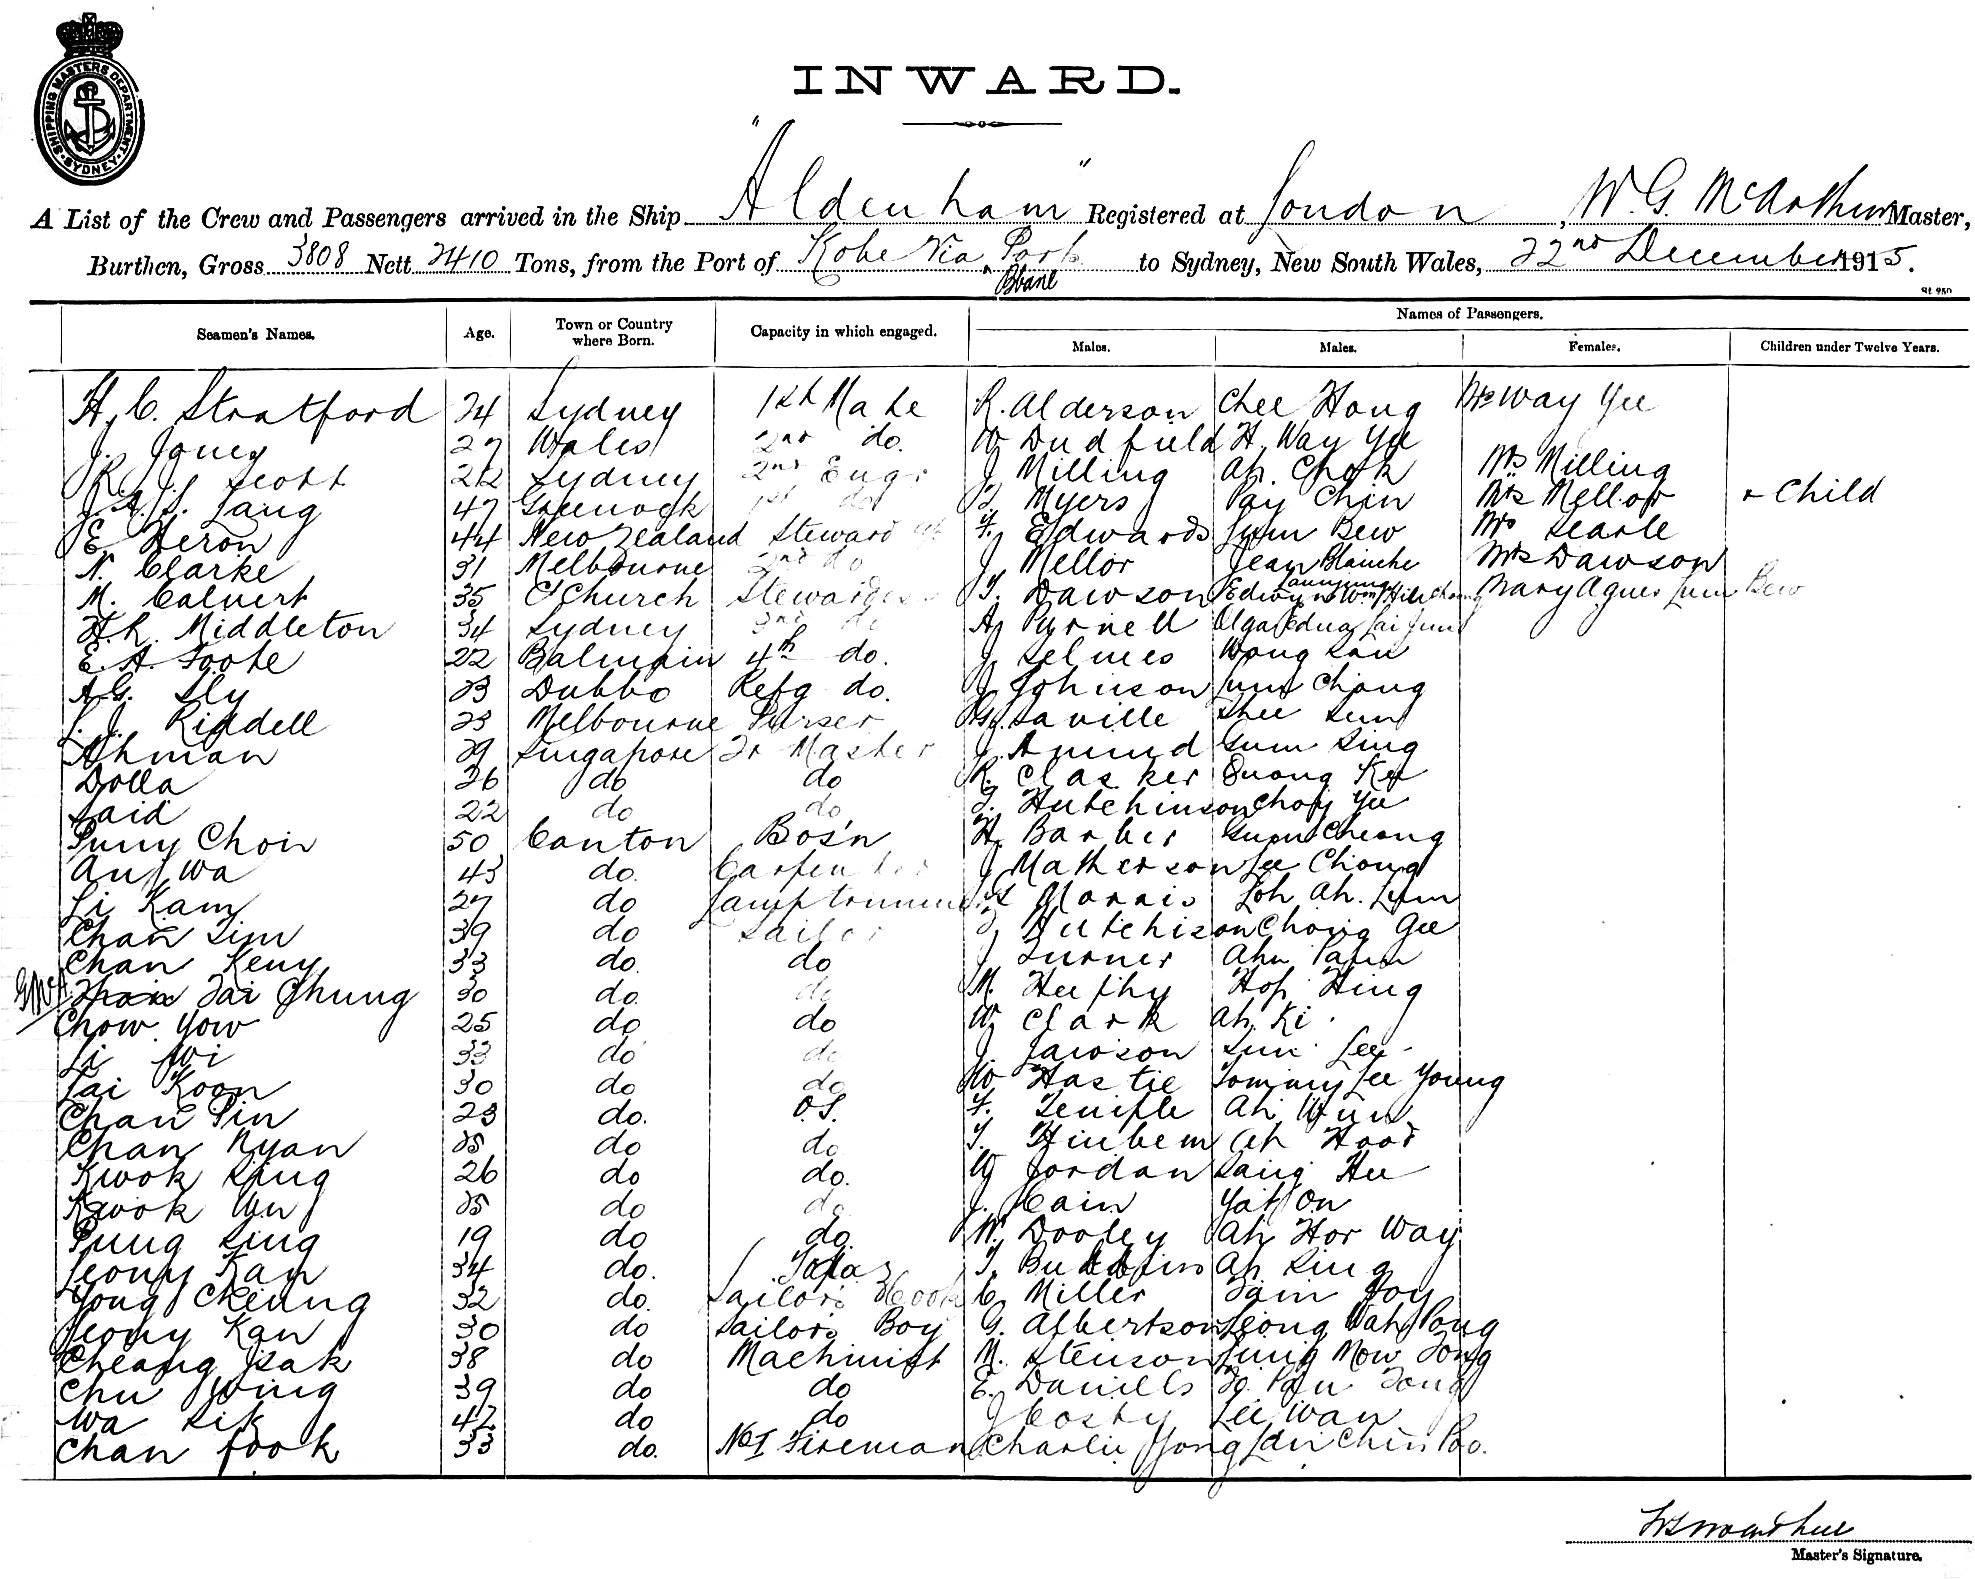 SHIPPING MASTERS DEPARTMENT · SYDNEY ·
INWARD.
A List of the Crew and Passengers arrived in the Ship "Aldenham" Registered at London, W. G. McArthur Master,
Burthen, Gross 3808 Nett 2410 Tons, from the Port of Kobe Via Ports to Sydney, New South Wales, 22nd December 1915.
Bbane
Names of Passengers.
Seamen's Names. Age. Town or Country where Born. Capacity in which engaged. Males. Males. Females. Children under Twelve Years.
H. C. Stratford 24 Sydney 1st Mate R. Alderson Chee Hong Mrs Way Yee
J. Jones 27 Wales 2nd do. W Dudfield H. Way Yee
R. Scott 22 Sydney 2nd Engr J Milling Ah Chok Mrs Milling
Lang 47 Greenock 1st do Myers Pay Chin Mrs Mellor + Child
E Heron 44 New Zealand Steward F. Edwards Lum Bew Mrs Searle
N. Clarke 31 Melbourne 2nd do J Mellor Jean Blanche Mrs Dawson
M. Calvert 35 ChChurch Stewardess T. Dawson Edwyn Wm Mary Agnes Lum Bew
H. R. Middleton 34 Sydney 3rd do A Purnell Olga Edna Lai Jun
E. A. Foote 22 Balmain 4th do. J Selmes Wong San
A. G. Sly 23 Dubbo Refg do. J Johnson Lum Chong
Riddell 23 Melbourne Purser Saville Shee Sum
Ahman 29 Singapore Qr Master J. Gum Sing
Dolla 26 do do R. Clasker Quong Kee
Said 22 do do Hutchinson Choy Yee
Choir 50 Canton Bos'n H Barber Cheong
Au Wa 43 do. Carpenter J Matherson Lee Chong
Li Kam 27 do Lamptrimmer Morris Loh Ah. Lum
Chan Sim 39 do Sailor J Hutchison Chong Gee
Chan Keny 33 do. do J Turner Ahn
Tai Chung 30 do. do M. Hop Hing
Chow Yow 25 do do W Clark Ah Ki.
Li Wi 33 do do J. Jawson Sun Lee
Lai Koon 30 do do W Hastie Tommy Lee Young
Chan Pin 23 do. O.S. F. Temple Ah Wun
Chan Nyan 25 do do T. Hinbem Ah Hood
Kwok Sing 26 do do. W Jordan Sang Hee
Kwok Wu 25 do do J. Cain Yat On
Pung Sing 19 do do. W. Dooley Ah Hor Way
Leony Kan 34 do. T. Ah Sing
Yong Cheung 32 do. Sailor's Cook C. Miller Tain Hoy
Leony Kan 30 do Sailor's Boy G. Albertson Leong Wah Pong
Cheang Isak 38 do Machinist M. Stenson Lung Mow Tong
Chu Wing 39 do do E. Daniells
Wa Sik 42 do do J Cosby Lee Wan
Chan fook 33 do. No 1 Fireman Charlie Yong Chin Poo.
Master's Signature.